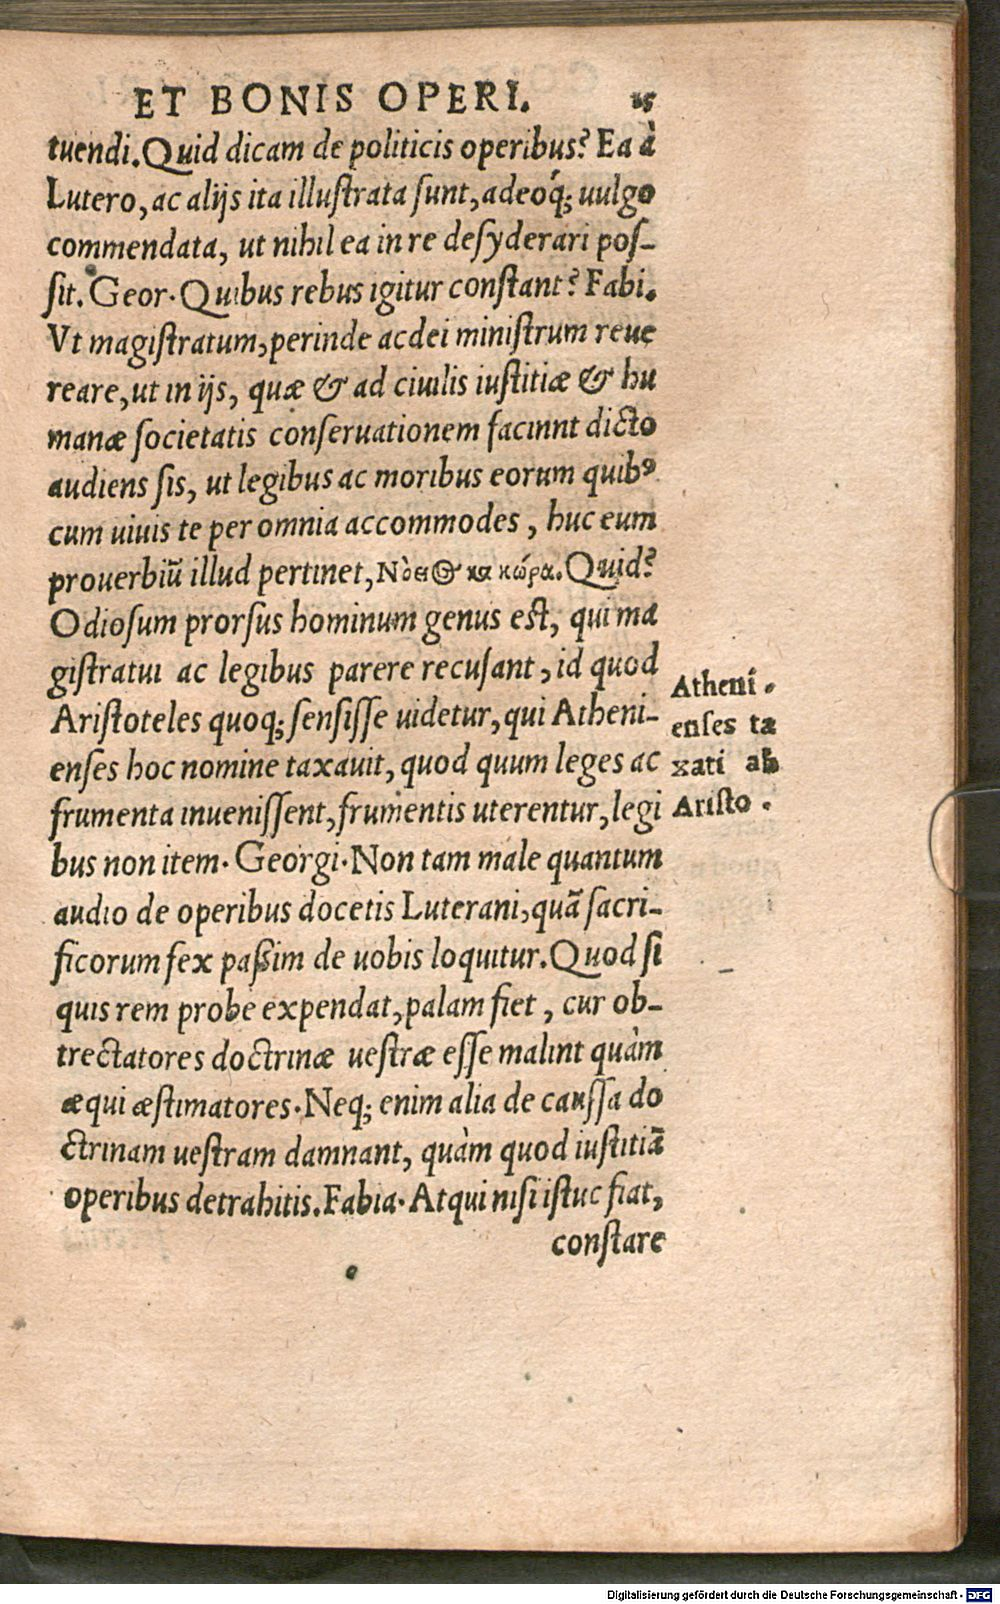 ET BONIS OPERI. 15
tuendi. Quid dicam de politicis operibus? Ea à
Lutero, ac alijs ita illuſtrata ſunt, adeóq; uulgo
commendata, ut nihil ea in re deſyderari poſ-
ſit. Geor. Quibus rebus igitur conſtant? Fabi.
Vt magiſtratum, perinde ac dei miniſtrum reue
reare, ut in ijs, quæ & ad ciuilis iuſtitiæ & hu
manæ ſocietatis conſeruationem facinnt dicto
audiens ſis, ut legibus ac moribus eorum quibꝰ
cum uiuis te per omnia accommodes, huc eum
prouerbiũ illud pertinet, Quid?
Odioſum prorſus hominum genus eſt, qui ma
giſtratui ac legibus parere recuſant, id quod
Ariſtoteles quoq; ſenſiſſe uidetur, qui Atheni-
enſes hoc nomine taxauit, quod quum leges ac
frumenta inueniſſent, frumentis uterentur, legi
bus non item. Georgi. Non tam male quantum
audio de operibus docetis Luterani, quã ſacri-
ficorum fex paßim de uobis loquitur. Quod ſi
quis rem probe expendat, palam fiet, cur ob-
trectatores doctrinæ ueſtræ eſſe malint quàm
æqui æſtimatores. Neq; enim alia de cauſſa do
ctrinam ueſtram damnant, quàm quod iuſtitiã
operibus detrahitis. Fabia. Atqui niſi iſtuc fiat,
conſtare
Atheni-
enſes ta
xati ab
Ariſto.
Digitalisierung gefördert durch die Deutsche Forschungsgemeinschaft - DFG